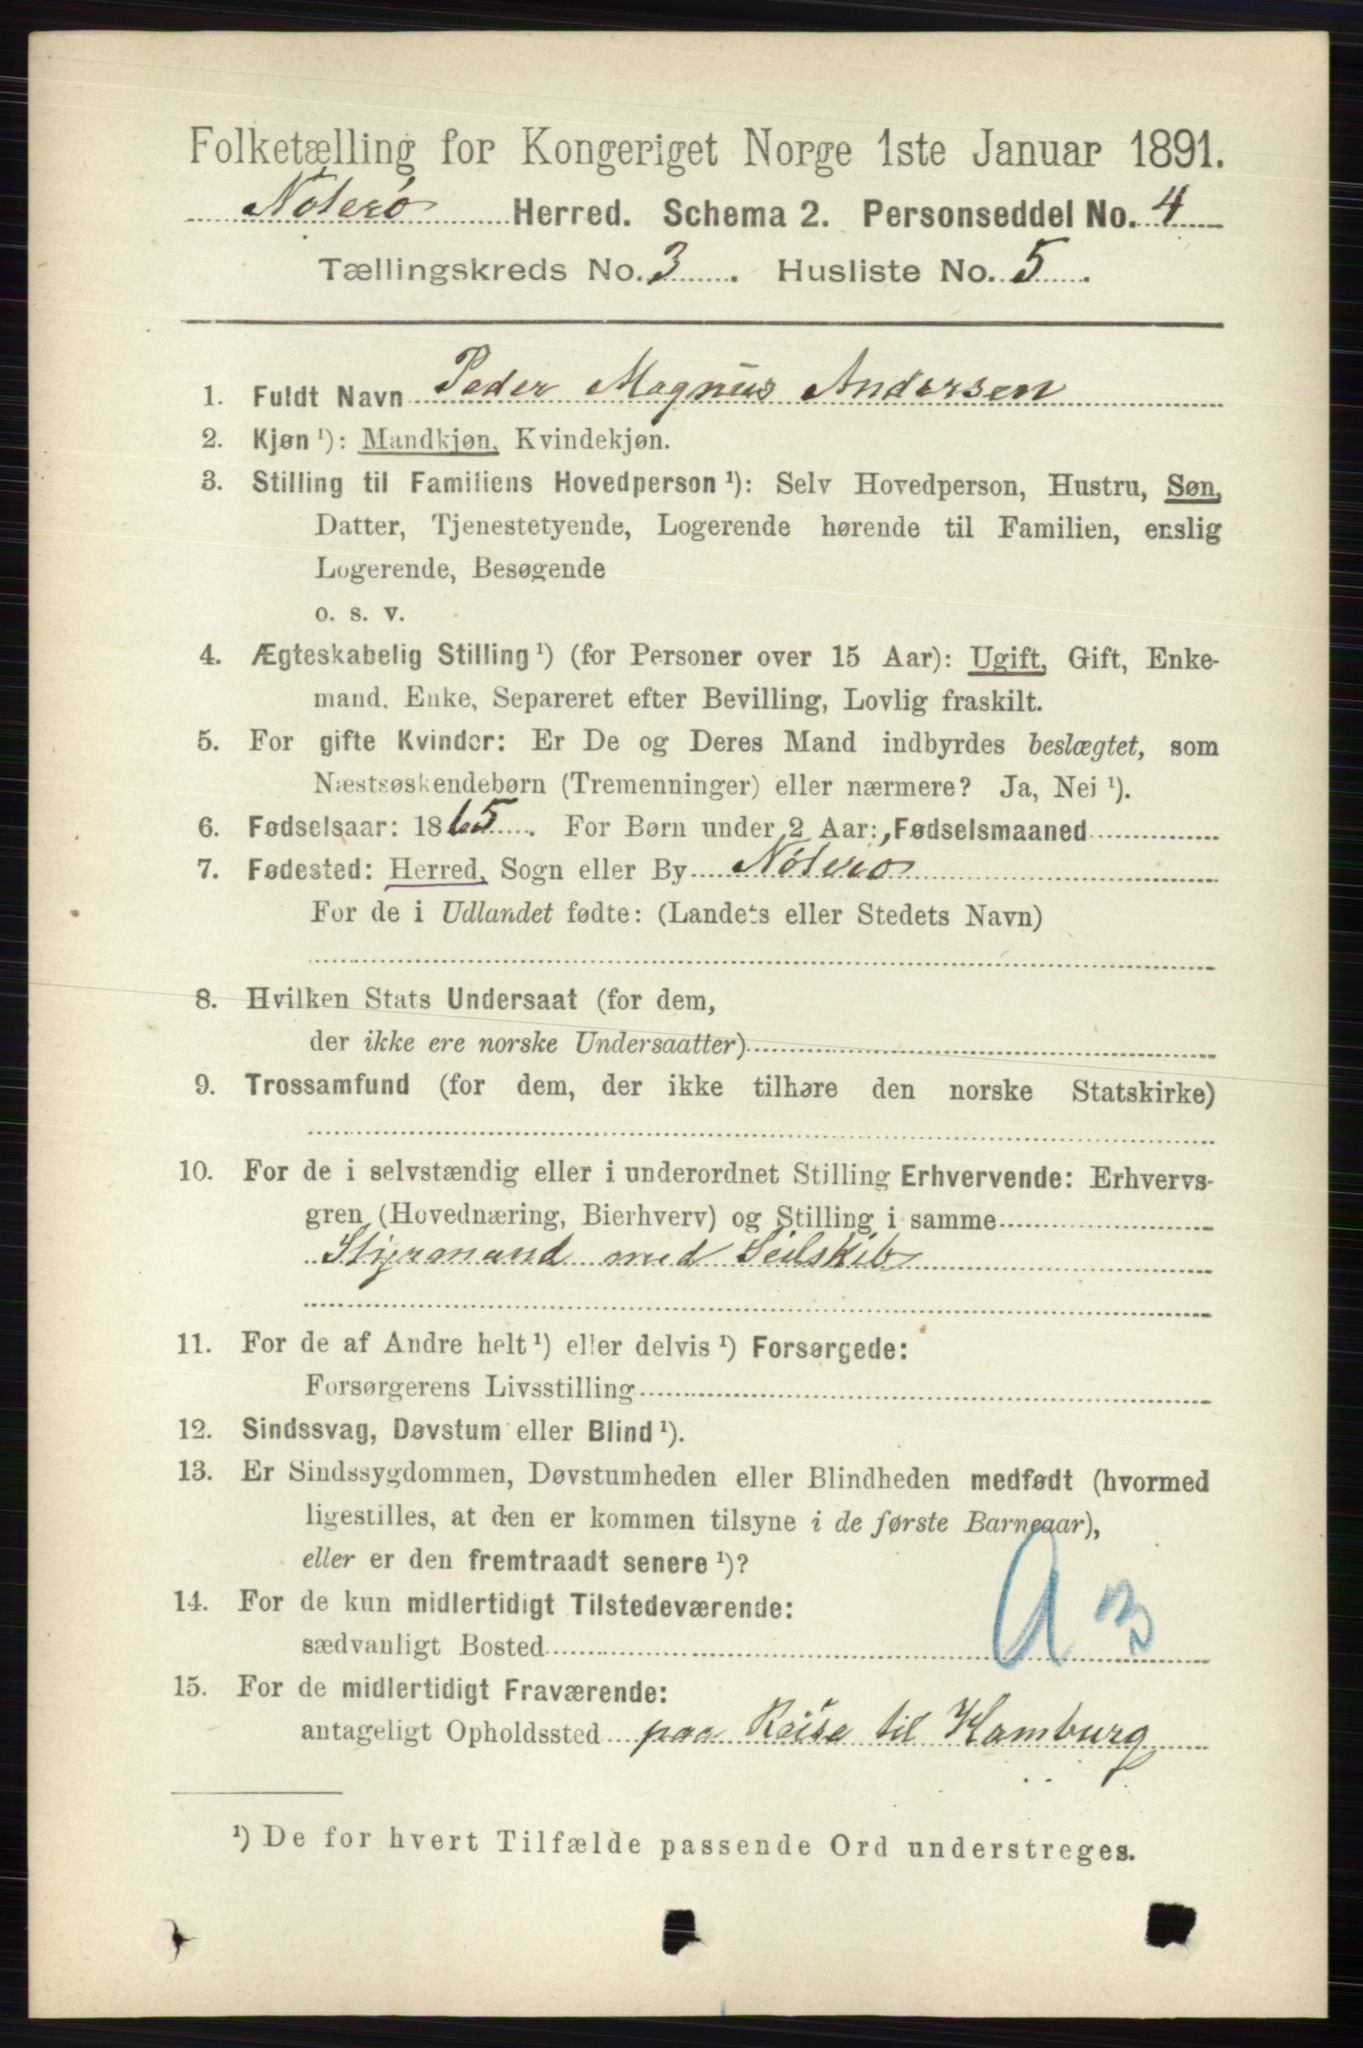 Folketælling for Kongeriget Norge 1ste Januar 1891.
Nøterø Herred. Schema 2. Personseddel No. 4
Tællingskreds No. 3. Husliste No. 5.
1. Fuldt Navn Peder Magnus Andersen
2. Kjøn ¹): Mandkjøn, Kvindekjøn.
3. Stilling til Familiens Hovedperson ¹): Selv Hovedperson, Hustru, Søn,
Datter, Tjenestetyende, Logerende hørende til Familien, enslig
Logerende, Besøgende
o. s. v.
4. Ægteskabelig Stilling ¹) (for Personer over 15 Aar): Ugift, Gift, Enke-
mand, Enke, Separeret efter Bevilling, Lovlig fraskilt.
5. For gifte Kvinder: Er De og Deres Mand indbyrdes beslægtet, som
Næstsøskendebørn (Tremenninger) eller nærmere? Ja, Nei ¹).
6. Fødselsaar: 1865. For Børn under 2 Aar: Fødselsmaaned
7. Fødested: Herred, Sogn eller By Nøterø
For de i Udlandet fødte: (Landets eller Stedets Navn)
8. Hvilken Stats Undersaat (for dem,
der ikke ere norske Undersaatter)
9. Trossamfund (for dem, der ikke tilhøre den norske Statskirke)
10. For de i selvstændig eller i underordnet Stilling Erhvervende: Erhvervs-
gren (Hovednæring, Bierhverv) og Stilling i samme
Styrmand med Seilskib
11. For de af Andre helt ¹) eller delvis ¹) Forsørgede:
Forsørgerens Livsstilling
12. Sindssvag, Døvstum eller Blind ¹).
13. Er Sindssygdommen, Døvstumheden eller Blindheden medfødt (hvormed
ligestilles, at den er kommen tilsyne i de første Barneaar),
eller er den fremtraadt senere ¹)?
14. For de kun midlertidigt Tilstedeværende:
sædvanligt Bosted
a 3
15. For de midlertidigt Fraværende:
antageligt Opholdssted paa Reise til Hamburg
¹) De for hvert Tilfælde passende Ord understreges.